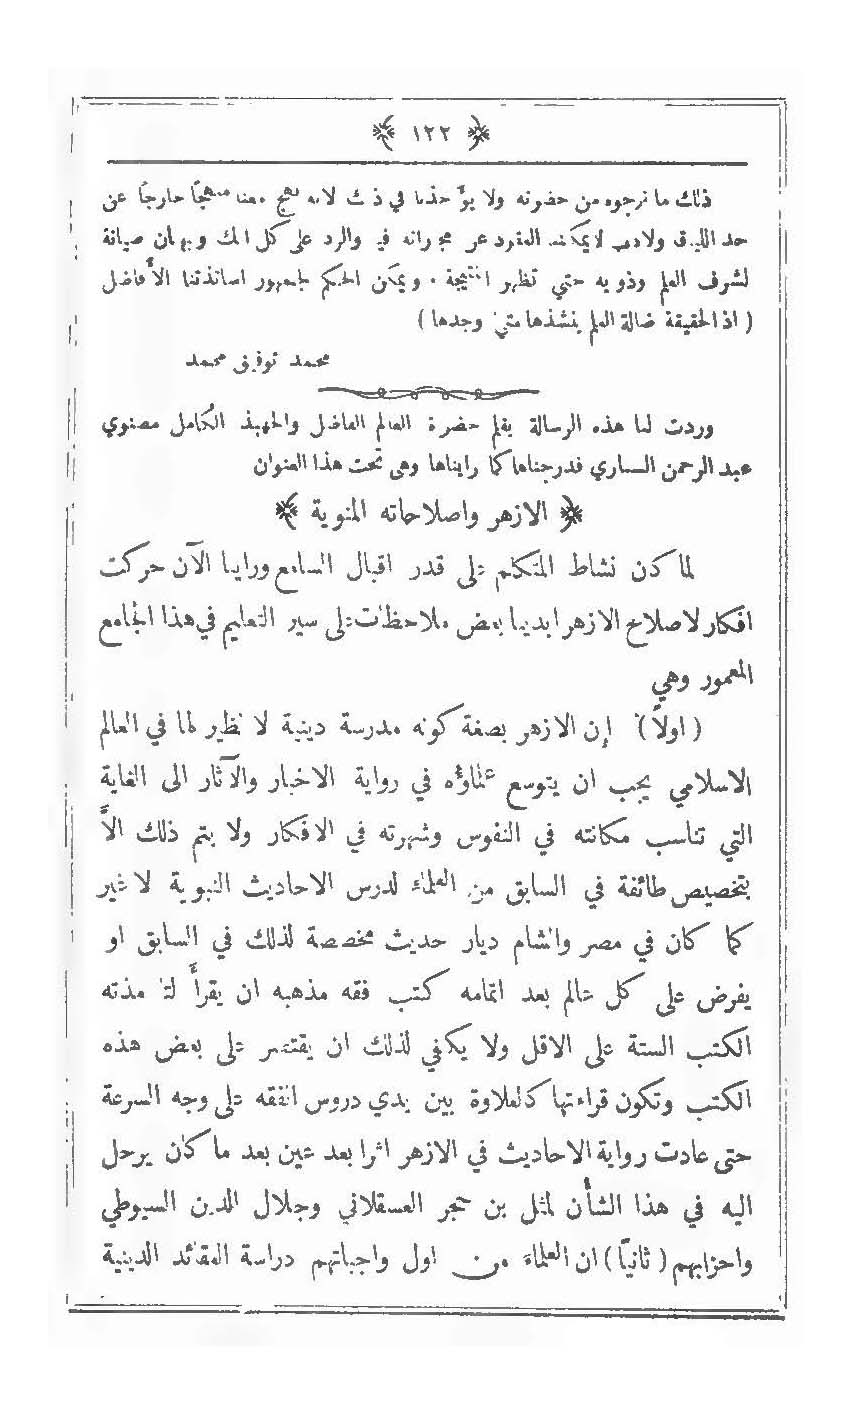 ﴿ ١٢٢ ﴾
ذلك ما نرجوه من حضرته ولا يؤاخذنا في ذلك لانه نهج معنا منهجًا خارجًا عن
حد اللياقة ولادب لا يمكنه المفرد عن مجراته فيه والرد على كل صيانة
لشرف العلم وذويه حتي تظهر النتيجة . ويمكن الحكم لجمهور اساتذتنا الأفاضل
( اذ الحقيقة ضالة العلم ينشذها متي وجدها )
محمد توفيق محمد
وردت لنا هذه الرسالة بقلم حضرة العالم الفاضل والجهبذ الكامل مصنوي
عبد الرحمن الساري فدرجناها كما رايناها وهى تحت هذا العنوان
﴿ الازهر واصلاحاته المنوية ﴾
لما كان نشاط المتكلم على قدر اقبال السامع وراينا الآن حركت
افكار لاصلاح الازهر ابدينا بعض ملاحظات على سير التعليم في هذا الجامع
المعمور وهي
( اولاً ) إن الازهر بصفة كونه مدرسة دينية لا نظير لها في العالم
الاسلامي يجب ان يتوسع علماؤه في رواية الاخبار والآثار الى الغاية
التي تناسب مكانته في النفوس وشهرته في الافكار ولا يتم ذلك الاَّ
بتخصيص طائفة في السابق من العلماء لدرس الاحاديث النبوية لا غير
كما كان في مصر والشام ديار حديث مخصصة لذلك في السابق او
يفرض على كل عالم بعد اتمامه كتب فقه مذهبه ان يقرأ لتلامذته
الكتب الستة على الاقل ولا يكفي لذلك ان يقتصر على بعض هذه
الكتب وتكون قراءتها كالعلاوة بين يدي دروس الفقه على وجه السرعة
حتى عادت رواية الاحاديث في الازهر اثرا بعد عين بعد ما كان يرحل
اليه في هذا الشأن لمثل بن حجر العسقلاني وجلال الدين السيوطي
واحزابهم ( ثانيًا ) ان العلماء من اول واجباتهم دراسة العقائد الدينية